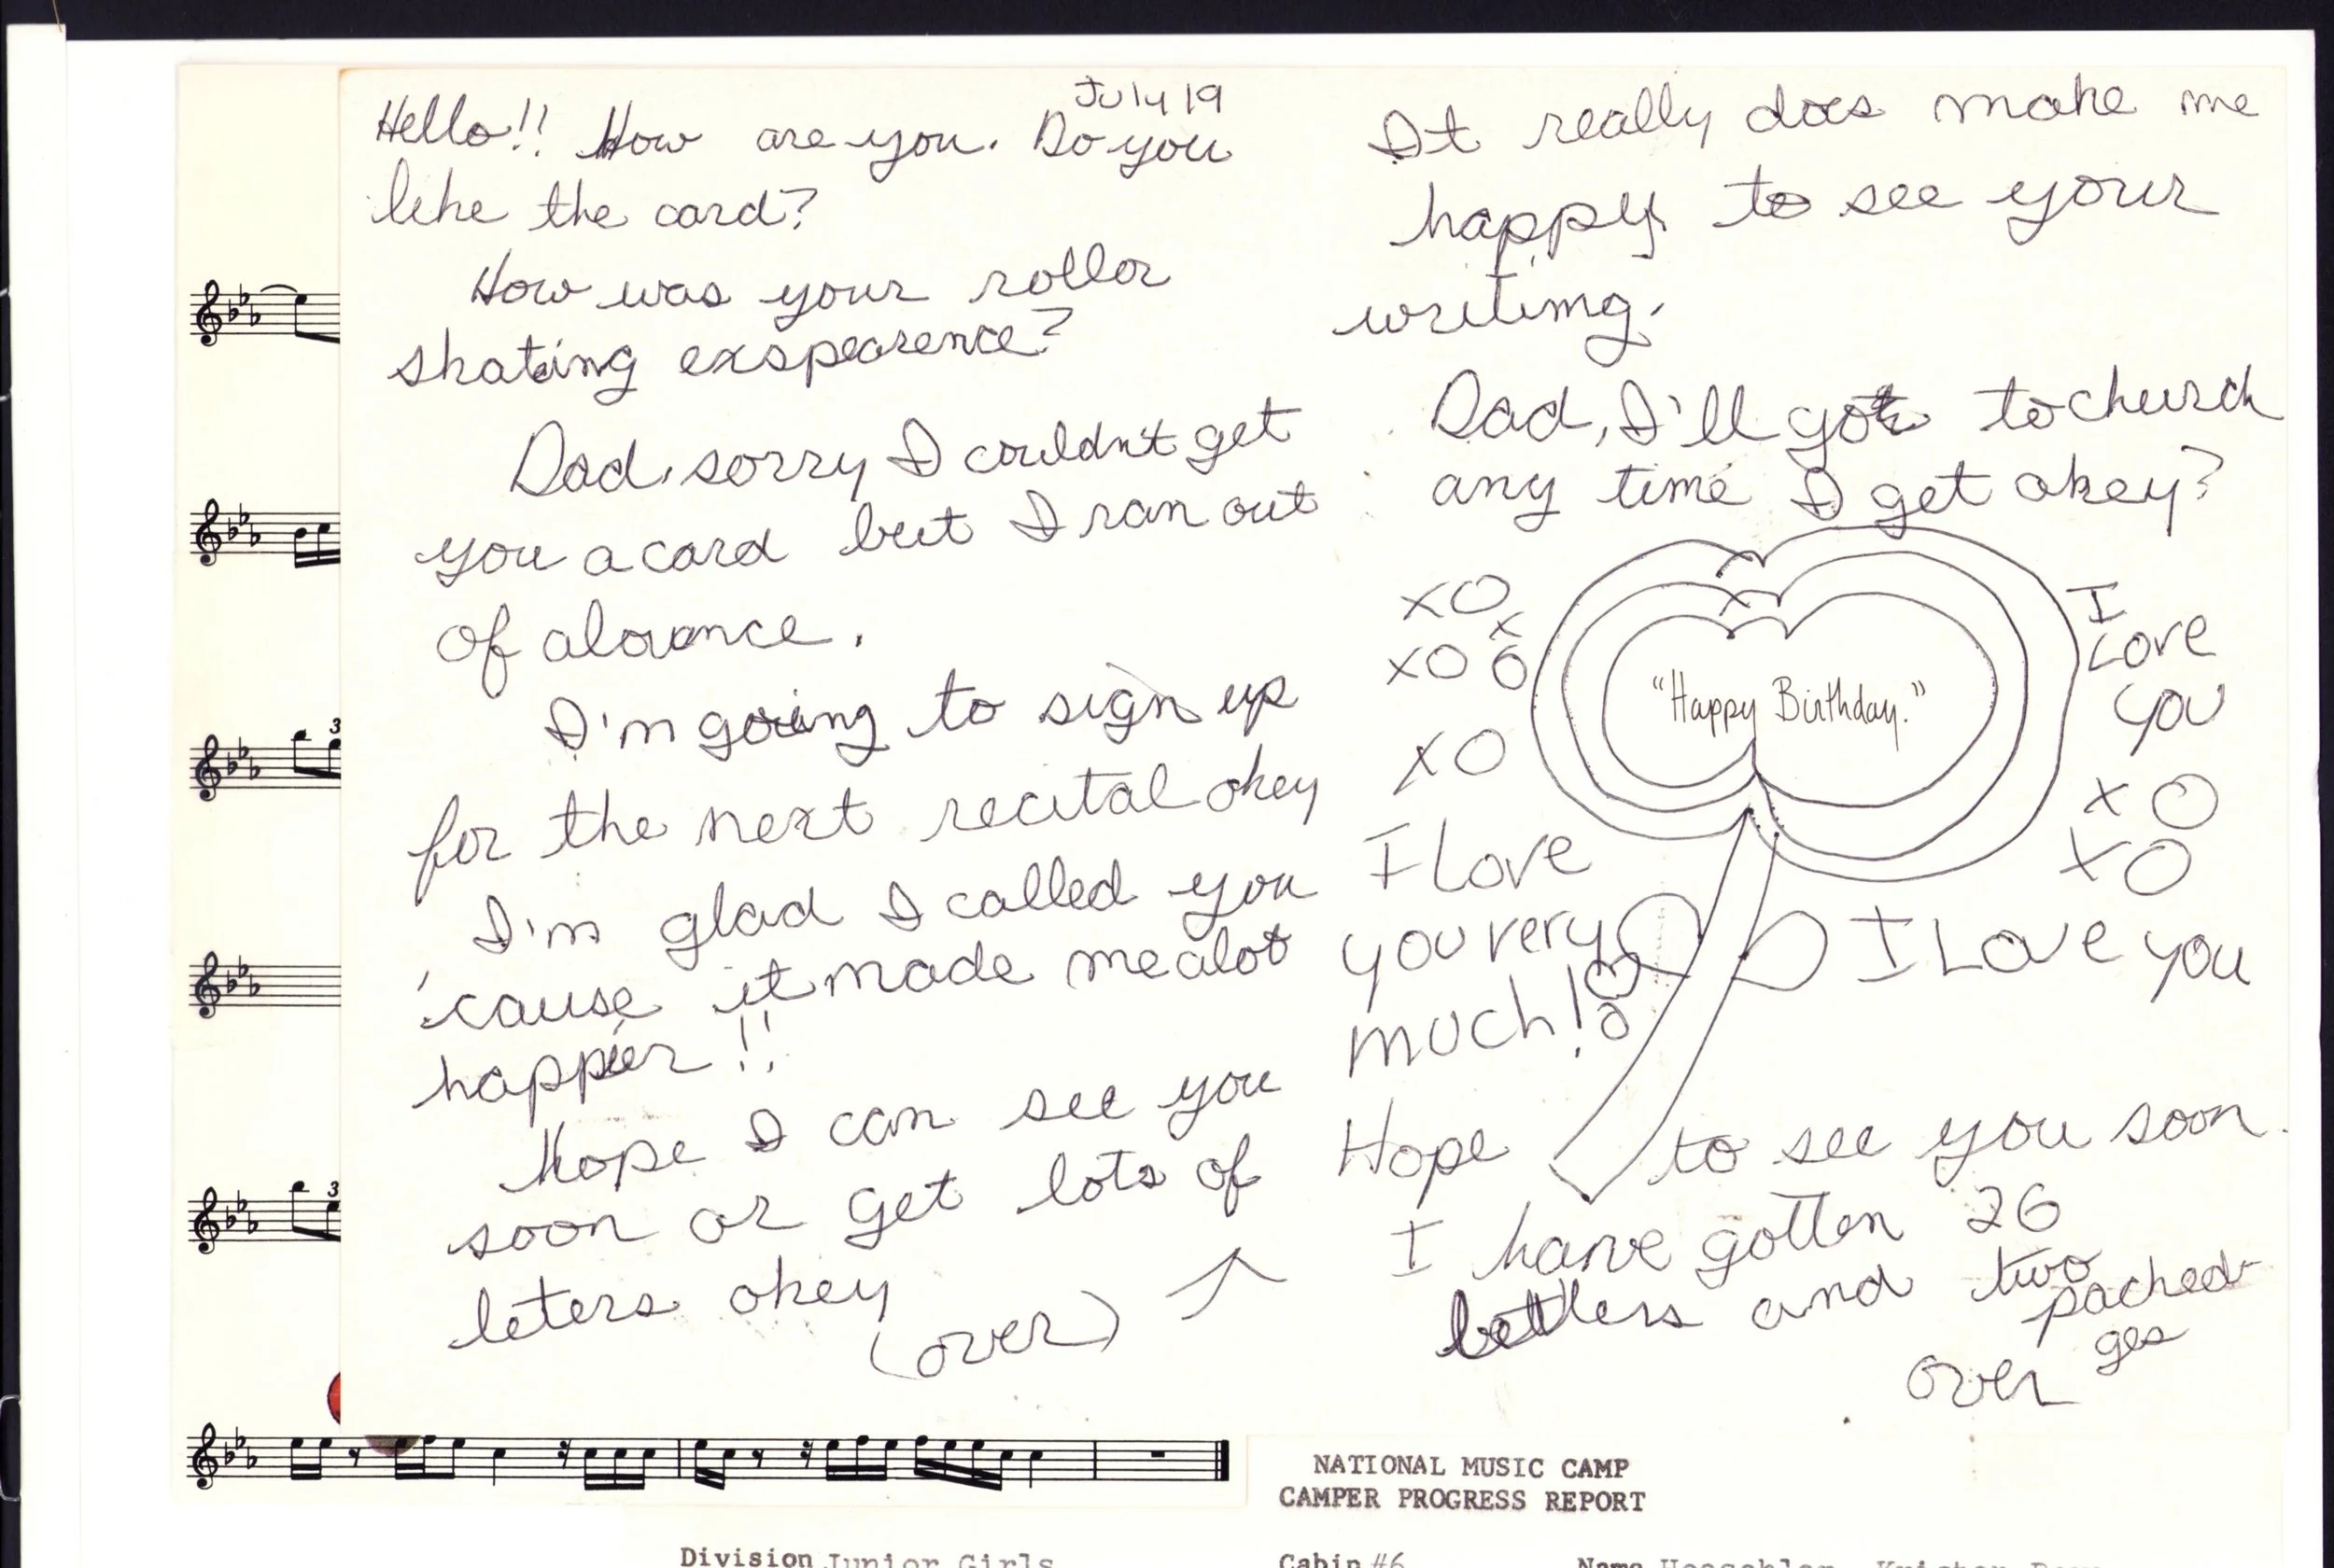 July 19
Hello!! How are you. Do you
like the card?
How was your roller
skating exspearence?
Dad, sorry I couldn't get
you a card but I ran out
of alowance.
I'm going to sign up
for the next recital okey
I'm glad I called you
'cause it made me alot
happier!!
Hope I can see you
soon or get lots of
leters okey
(over)
It really does make me
happy to see your
writing.
Dad, I'll go to church
any time I get okey?
XO
X
XO O
XO
"Happy Birthday."
I
Love
you
XO
XO
I Love
you very
much!
I Love you
Hope to see you soon.
I have gotten 26
letters and two
packed-
ges
over
3
3
NATIONAL MUSIC CAMP
CAMPER PROGRESS REPORT
Division Junior Girls
Cabin #6
Name